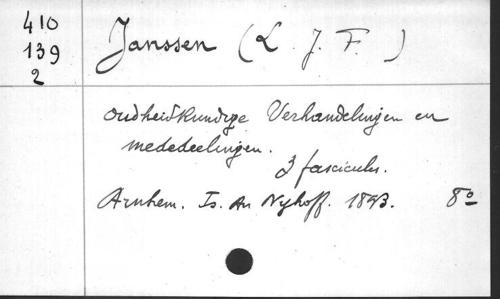 410
139
2
Janssen (L. J. F. )
Oudheidkundige Verhandelingen en
mededeelingen.
fascicules.
Arnhem. Is. An Nyhoff. 1853. 8°